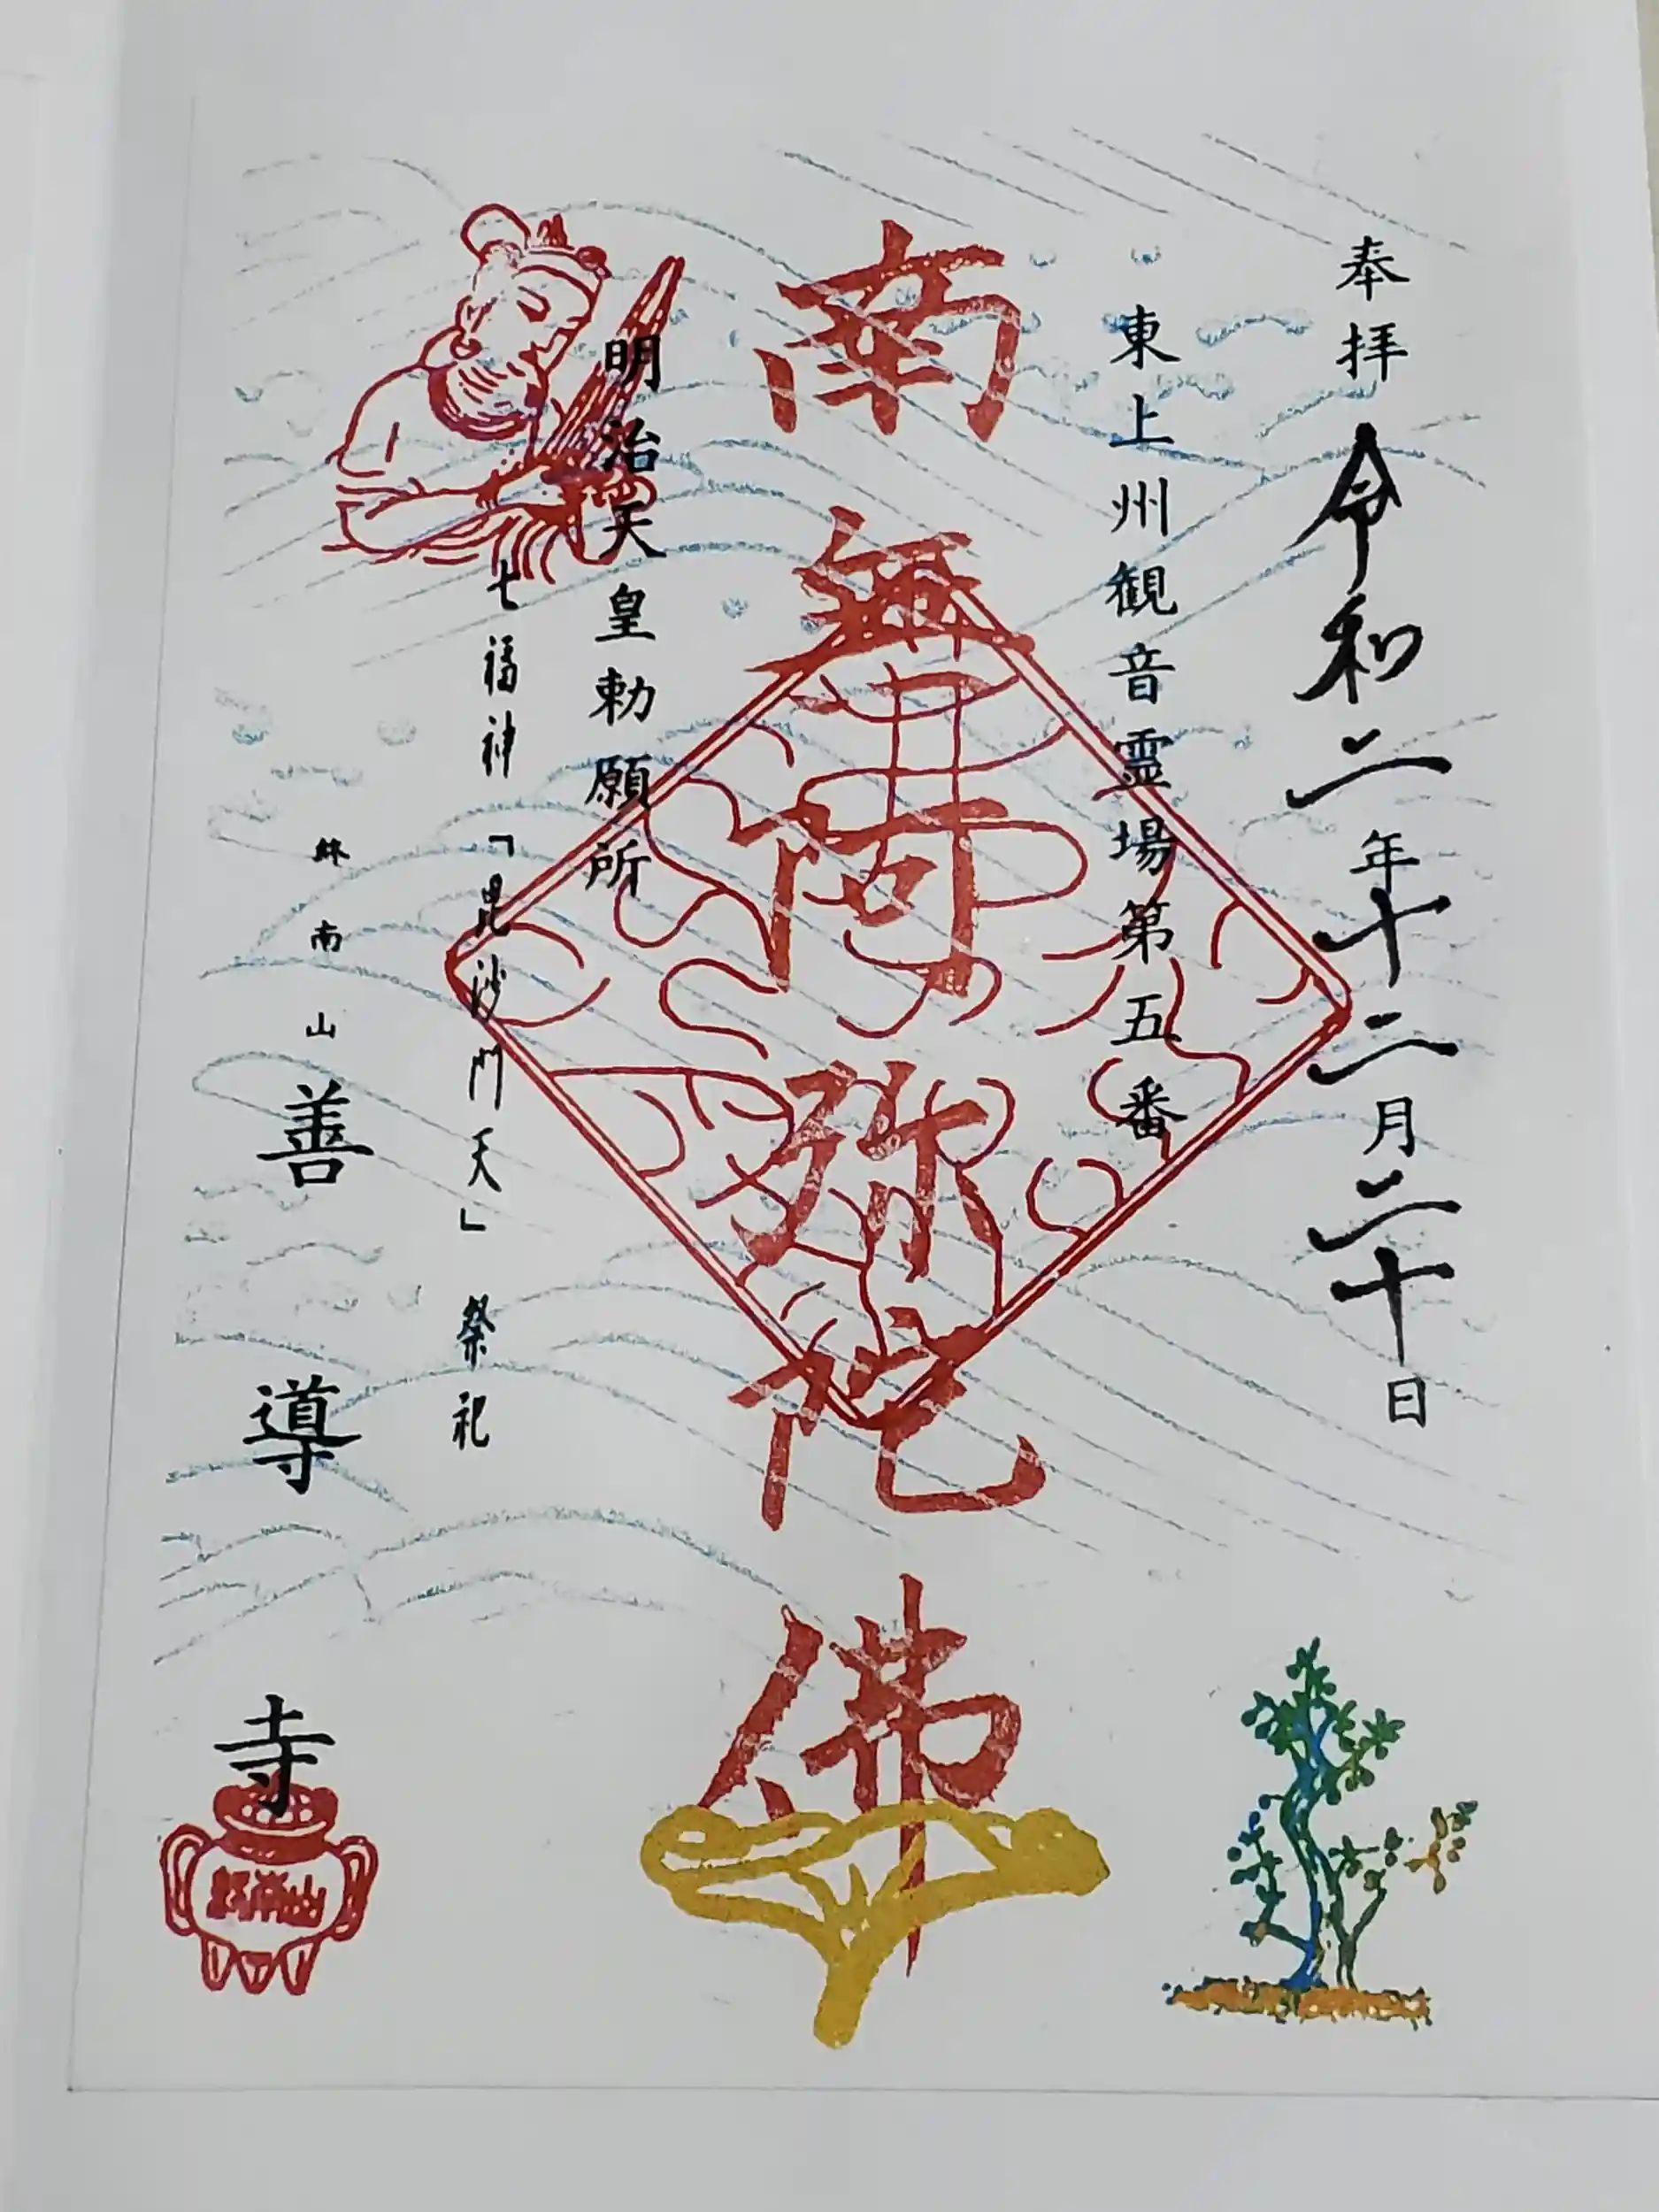 奉拝 令和二年十二月二十日
東上州観音霊場第五番
南無阿弥陀佛
明治天皇勅願所
七福神「昆沙門天」祭祀
終南山 善導寺